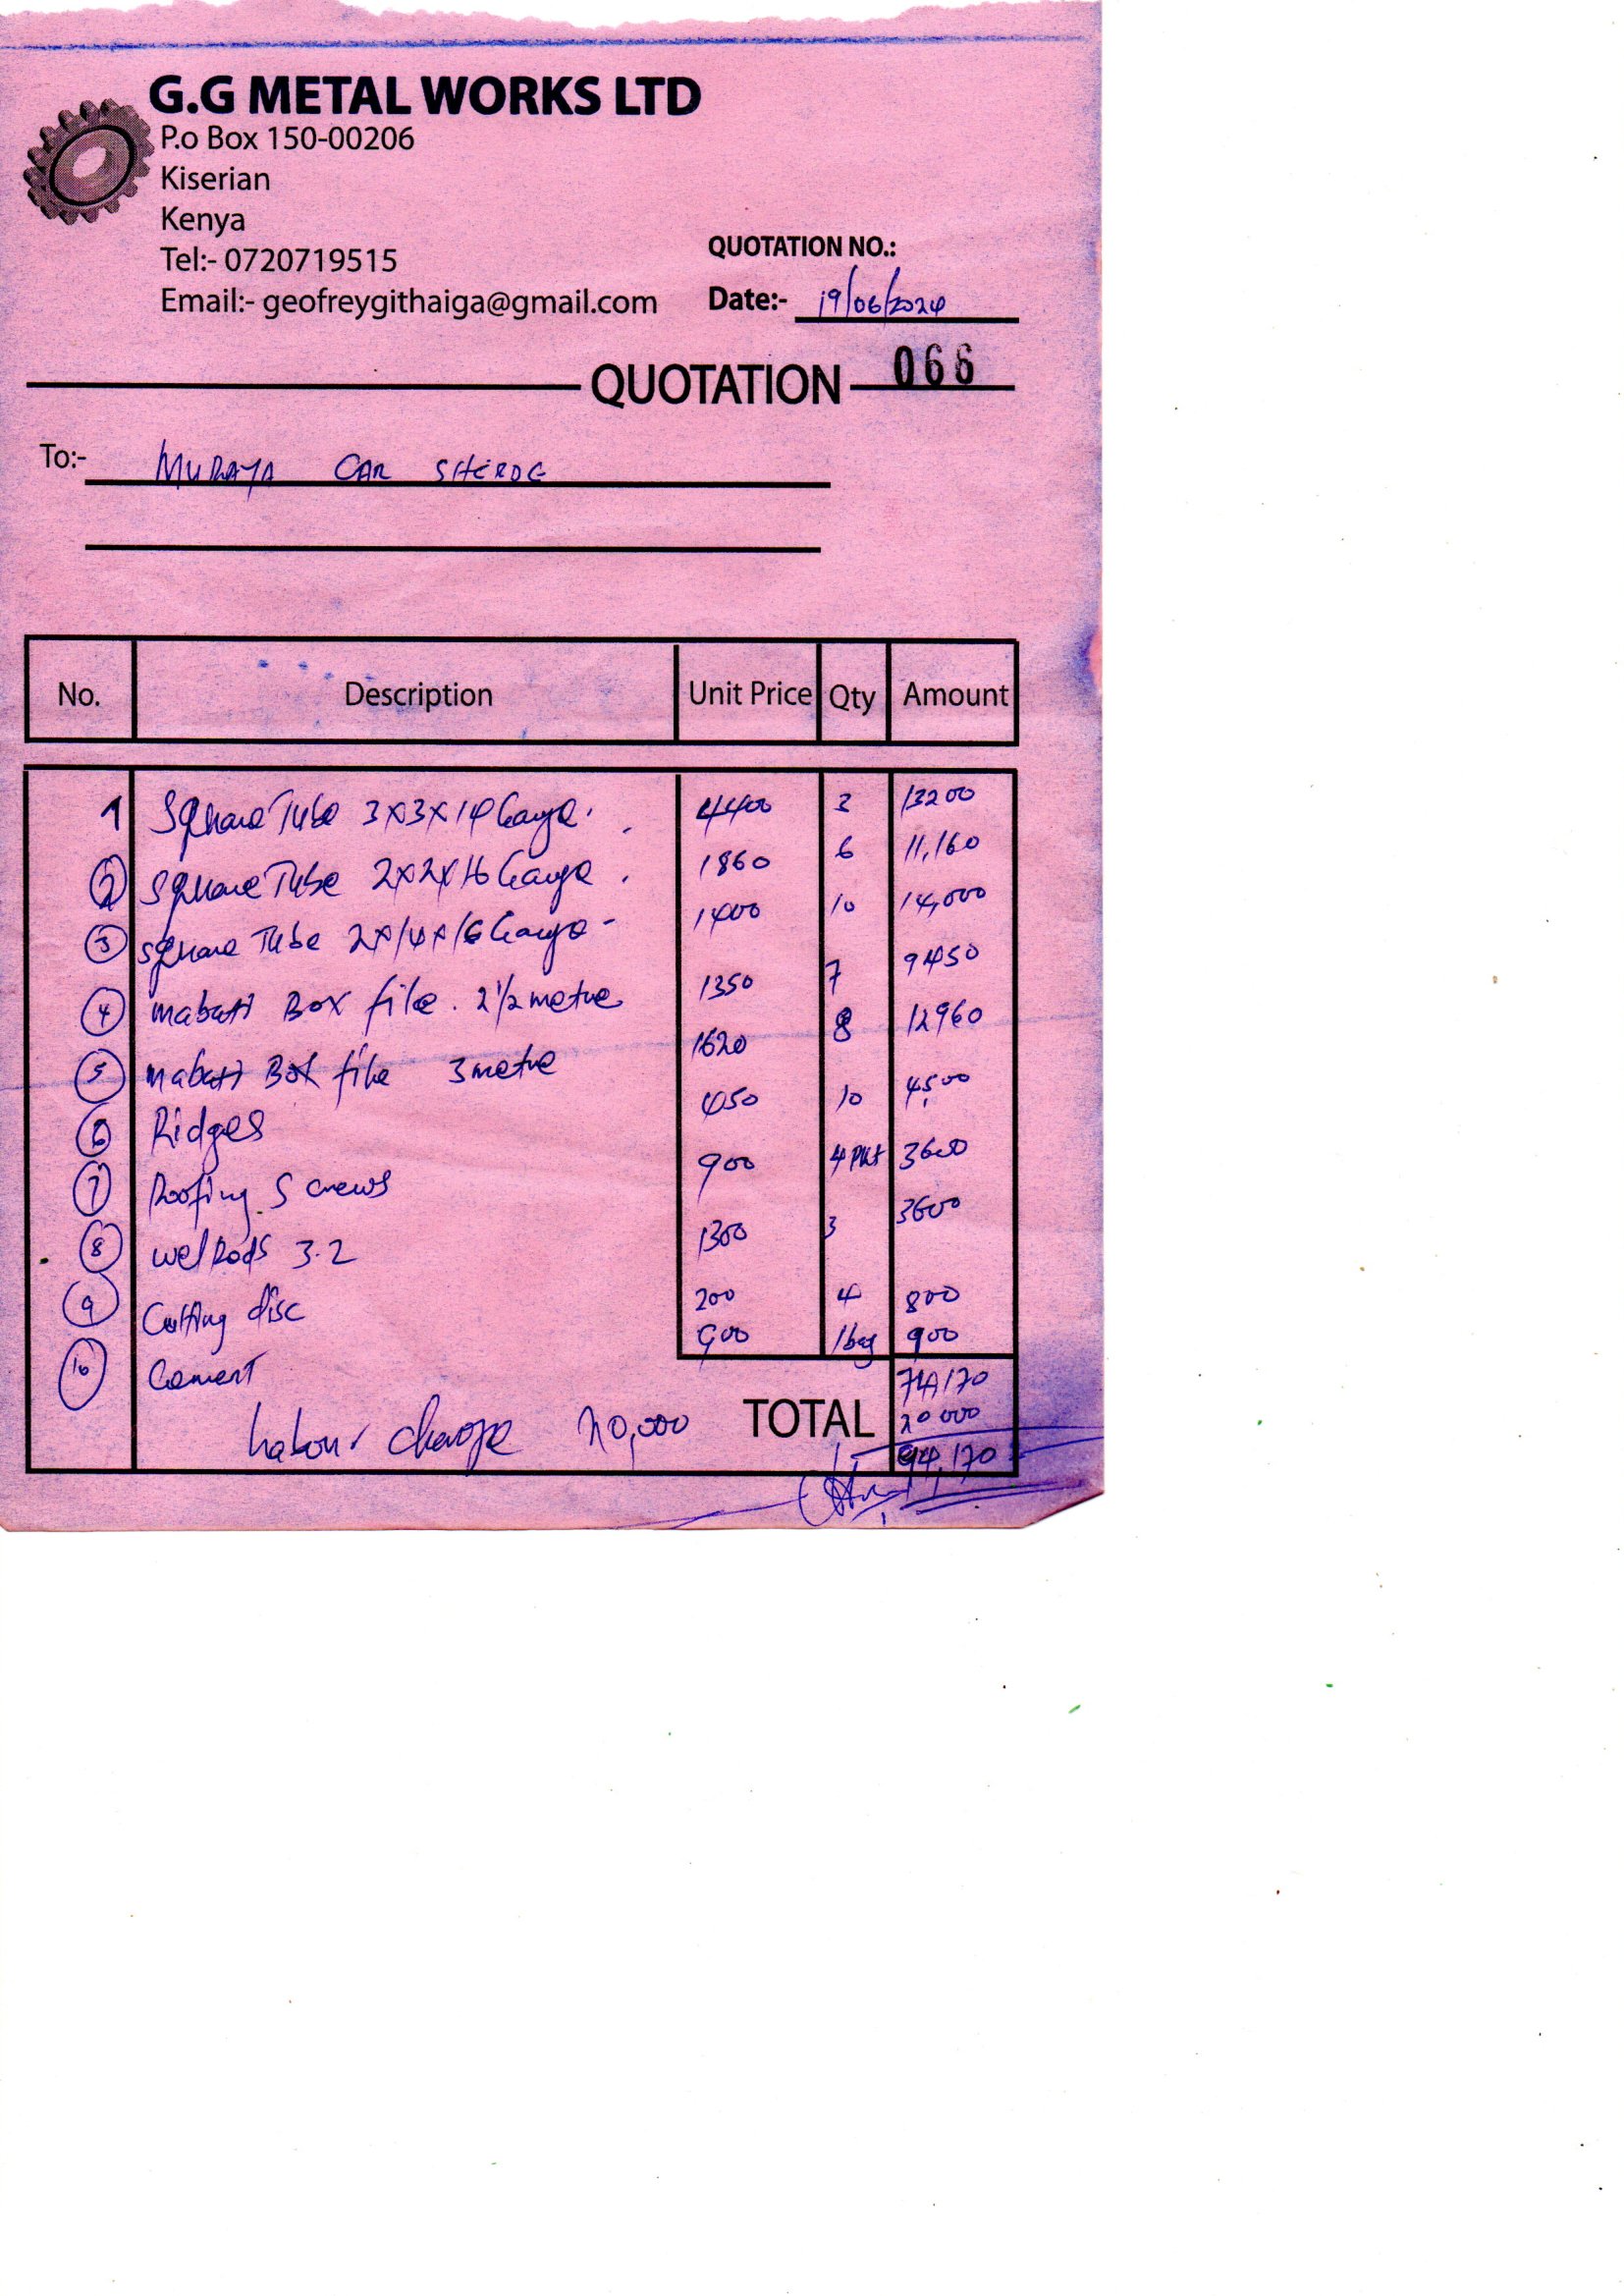 G.G METAL WORKS LTD
P.o Box 150-00206
Kiserian
Kenya
Tel:- 0720719515
Email:- geofreygithaiga@gmail.com
QUOTATION NO.:
Date:- 19/06/2024
QUOTATION 066
To:- MURAYA CAR SHERDE
No. Description Unit Price Qty Amount
1 Square Tube 3x3x14 Gauge. 4400 3 13200
2 Square Tube 2x2x16 Gauge. 1860 6 11,160
3 Square Tube 2x1/4x16 Gauge - 1400 10 14,000
4 mabati Box file. 2 1/2 metre 1350 7 9450
5 mabati Box file 3 metre 1620 8 12960
6 Ridges 450 10 4,500
7 Roofing Screws 900 4 Pkt 3600
8 wel Rods 3.2 1300 3 3600
9 Cutting disc 200 4 800
10 Cement 900 1 bag 900
74170
Labour charge 20,000 TOTAL 20 000
94,170